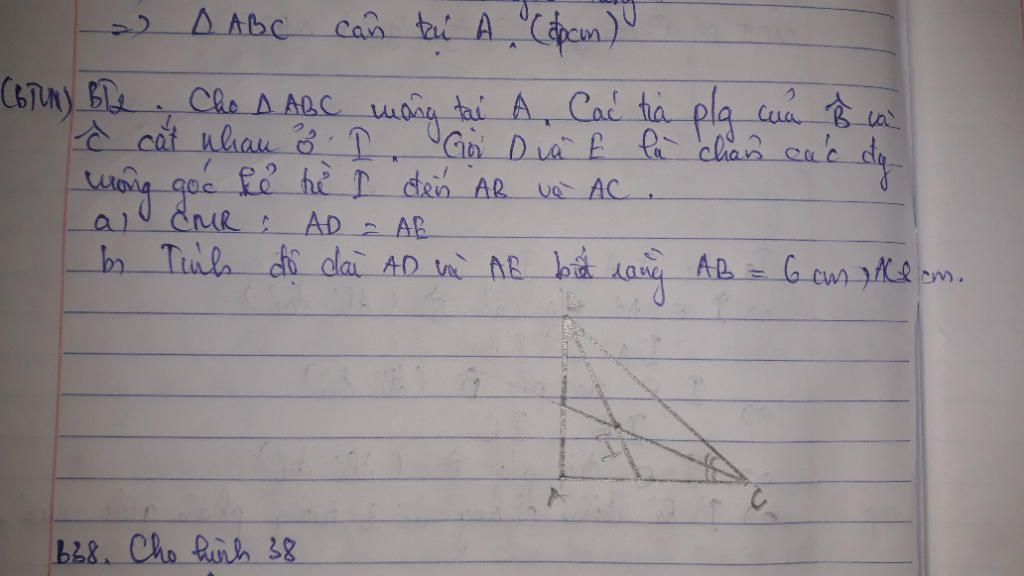 => Δ ABC cân tại A. (đpcm)
(BTVN) BT2. Cho Δ ABC vuông tại A. Các tia p/g của B̂ và
Ĉ cắt nhau ở I. Gọi D và E là chân các đg
vuông góc kẻ từ I đến AB và AC.
a) CMR : AD = AE
b) Tính độ dài AD và AE biết rằng AB = 6 cm, AC cm.
B
I
A
C
B38. Cho hình 38